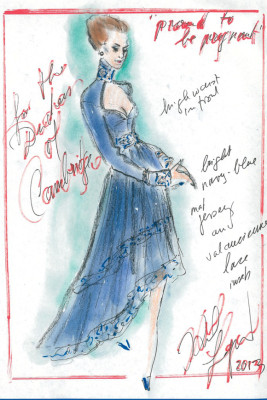 "proud to
be pregnant"
for the
Duchess
of
Cambridge
high waist
in front
bright
navy blue
jersey
and
valenciennes
lace
2013